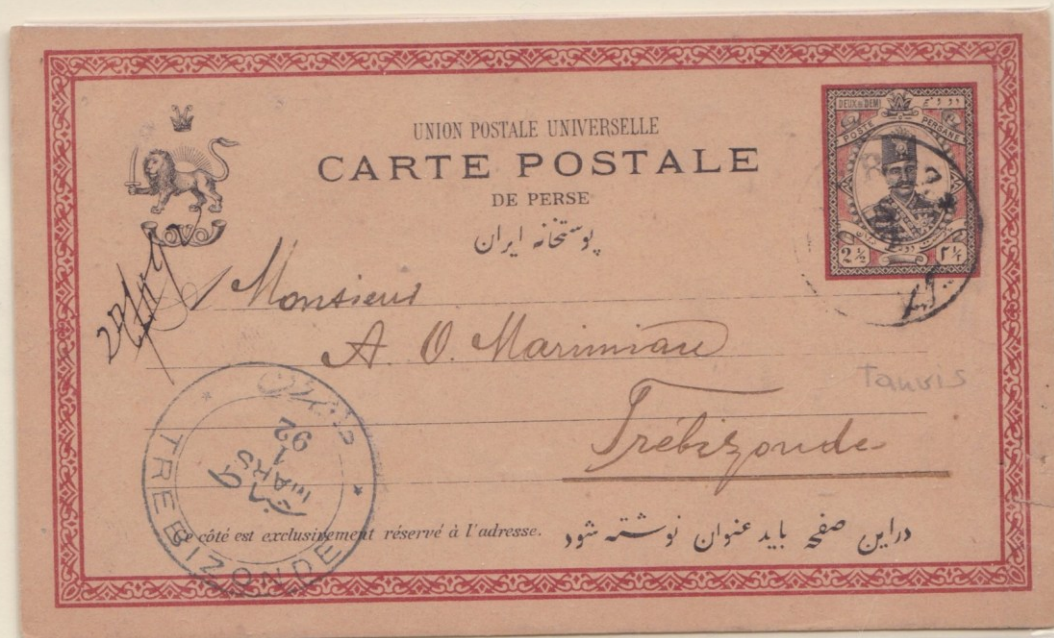 UNION POSTALE UNIVERSELLE
CARTE POSTALE
DE PERSE
پوستخانه ایران
DEUX & DEMI
POSTE PERSANE
2 ½ ۲ ½
Monsieur
A. O. Marimian
Tauris
Trébizonde
TREBIZONDE
MARS
92
Ce côté est exclusivement réservé à l'adresse.
دراین صفحه باید عنوان نوشته شود